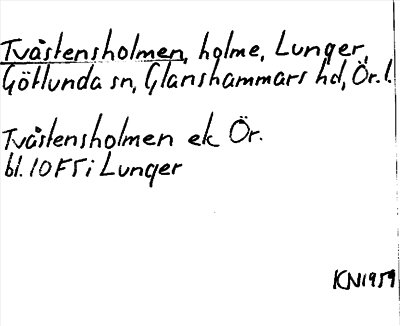 Tvåstensholmen, holme, Lunger,
Götlunda sn, Glanshammars hd, Ör. l.
Tvåstensholmen ek Ör.
bl. 10 F 5 i Lunger
KN 1959